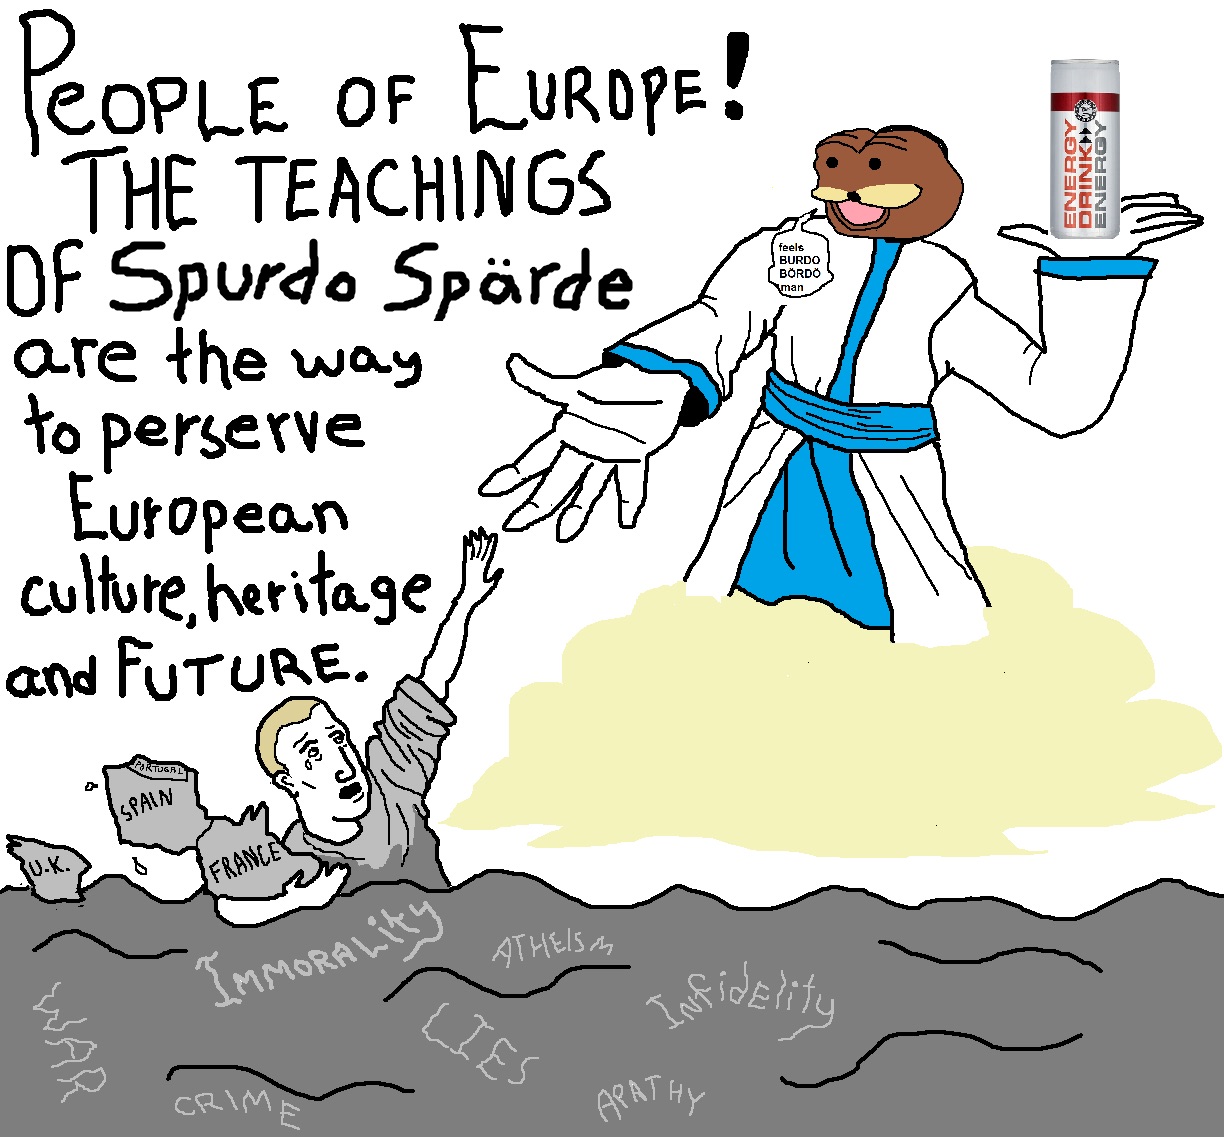 PEOPLE OF EUROPE!
THE TEACHINGS
OF Spurdo Spärde
are the way
to perserve
European
culture, heritage
and FUTURE.
ENERGY
DRINK
ENERGY
feels
BURDO
BÖRDÖ
man
PORTUGAL
SPAIN
U.K.
FRANCE
IMMORALITY
ATHEISM
INFIDELITY
WAR
LIES
CRIME
APATHY